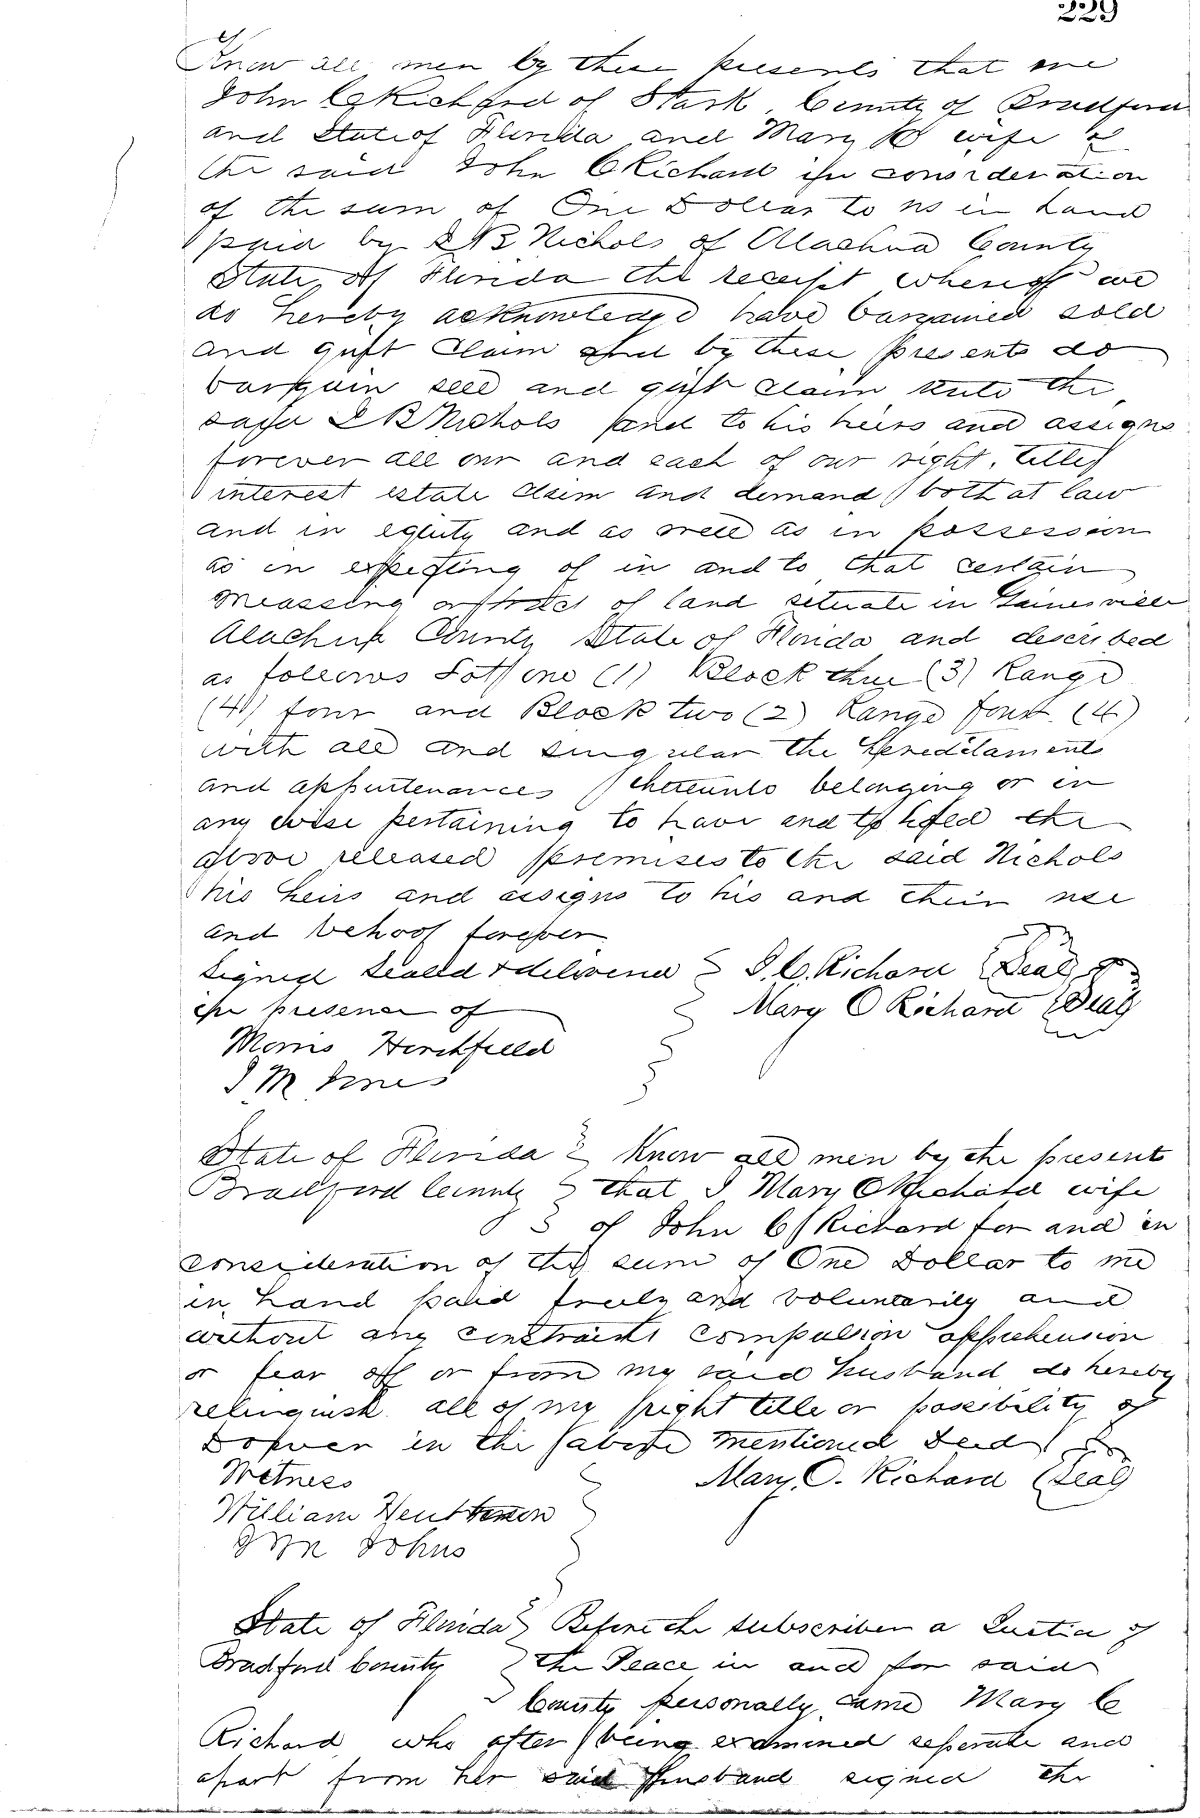 229
Know all men by these presents that we
John C Richard of Stark, County of Bradford
and State of Florida and Mary wife of
the said John C Richard in consideration
of the sum of One Dollar to us in hand
paid by I B Nichols of Alachua County
State of Florida the receipt whereof we
do hereby acknowledge have bargained sold
and quit claim and by these presents do
bargain sell and quit claim unto the
said I B Nichols and to his heirs and assigns
forever all our and each of our right, title
interest estate claim and demand both at law
and in equity and as well as in possession
as in expecting of in and to that certain
messing or tract of land situate in Gainesville
Alachua County State of Florida and described
as follows Lot one (1) Block three (3) Range
(4) four and Block two (2) Range four (4)
with all and singular the hereditaments
and appurtenances thereunto belonging or in
any wise pertaining to have and to hold the
above released premises to the said Nichols
his heirs and assigns to his and their use
and behoof forever
Signed sealed & delivered J. C. Richard (Seal)
in presence of Mary C Richard (Seal)
Morris Hirchfield
J M Jones
State of Florida Know all men by the present
Bradford County that I Mary C Richard wife
of John C Richard for and in
consideration of the sum of One Dollar to me
in hand paid freely and voluntarily and
without any constraint compulsion apprehension
or fear off or from my said husband do hereby
relinquish all of my right title or possibility of
Dower in the above mentioned Deed
Witness Mary C. Richard (Seal)
William
Johns
State of Florida Before the subscriber a Justice of
Bradford County the Peace in and for said
County personally came Mary C
Richard who after being examined seperate and
apart from her said Husband signed the